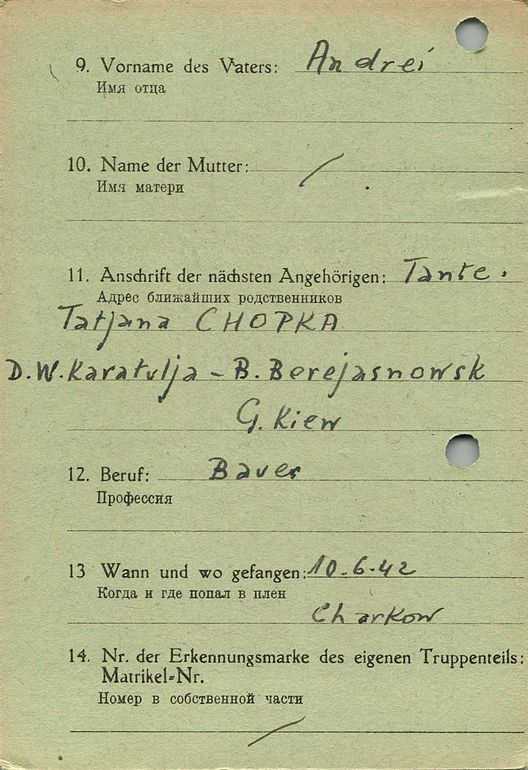 9. Vorname des Vaters: Andrei
Имя отца
10. Name der Mutter: /
Имя матери
11. Anschrift der nächsten Angehörigen: Tante.
Адрес ближайших родственников
Tatjana CHOPKA
D.W. Karatulja - B. Berejasnowsk
G. Kiew
12. Beruf: Bauer
Профессия
13 Wann und wo gefangen: 10-6-42
Когда и где попал в плен
Charkow
14. Nr. der Erkennungsmarke des eigenen Truppenteils:
Matrikel-Nr.
Номер в собственной части
/